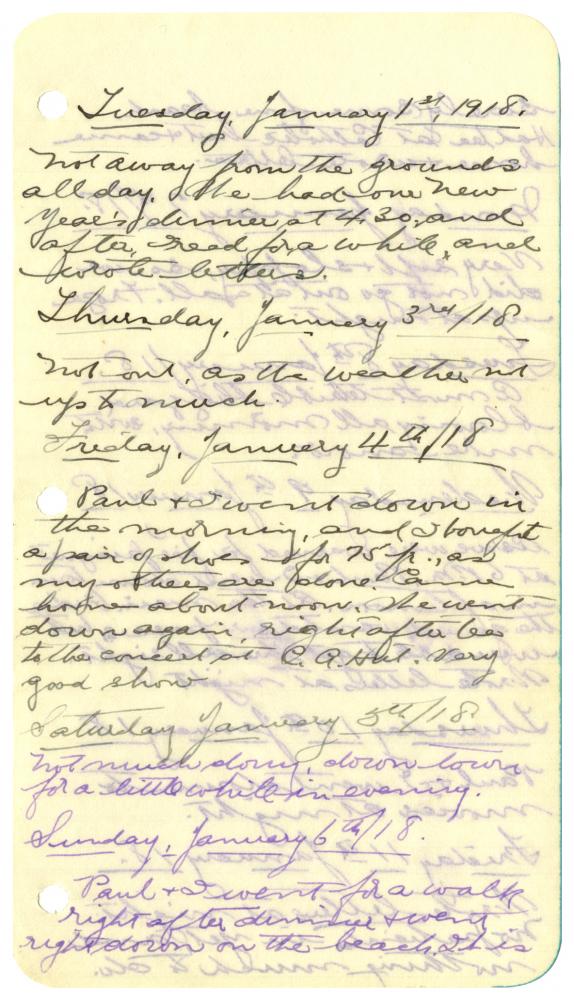 Tuesday, January 1st, 1918.
Not away from the grounds
all day. We had our New
Year's dinner at 4.30, and
after, I read for a while, and
wrote letters.
Thursday, January 3rd/18
Not out, as the weather not
up to much.
Friday, January 4th/18
Paul & I went down in
the morning, and I bought
a pair of shoes for 75 fr., as
my others are done. Came
home about noon. We went
down again, right after
to the concert at C. A. Hut. Very
good show
Saturday January 5th/18.
Not much doing, down town
for a little while in evening.
Sunday, January 6th/18.
Paul & I went for a walk
right after dinner & went
right down on the beach. It is